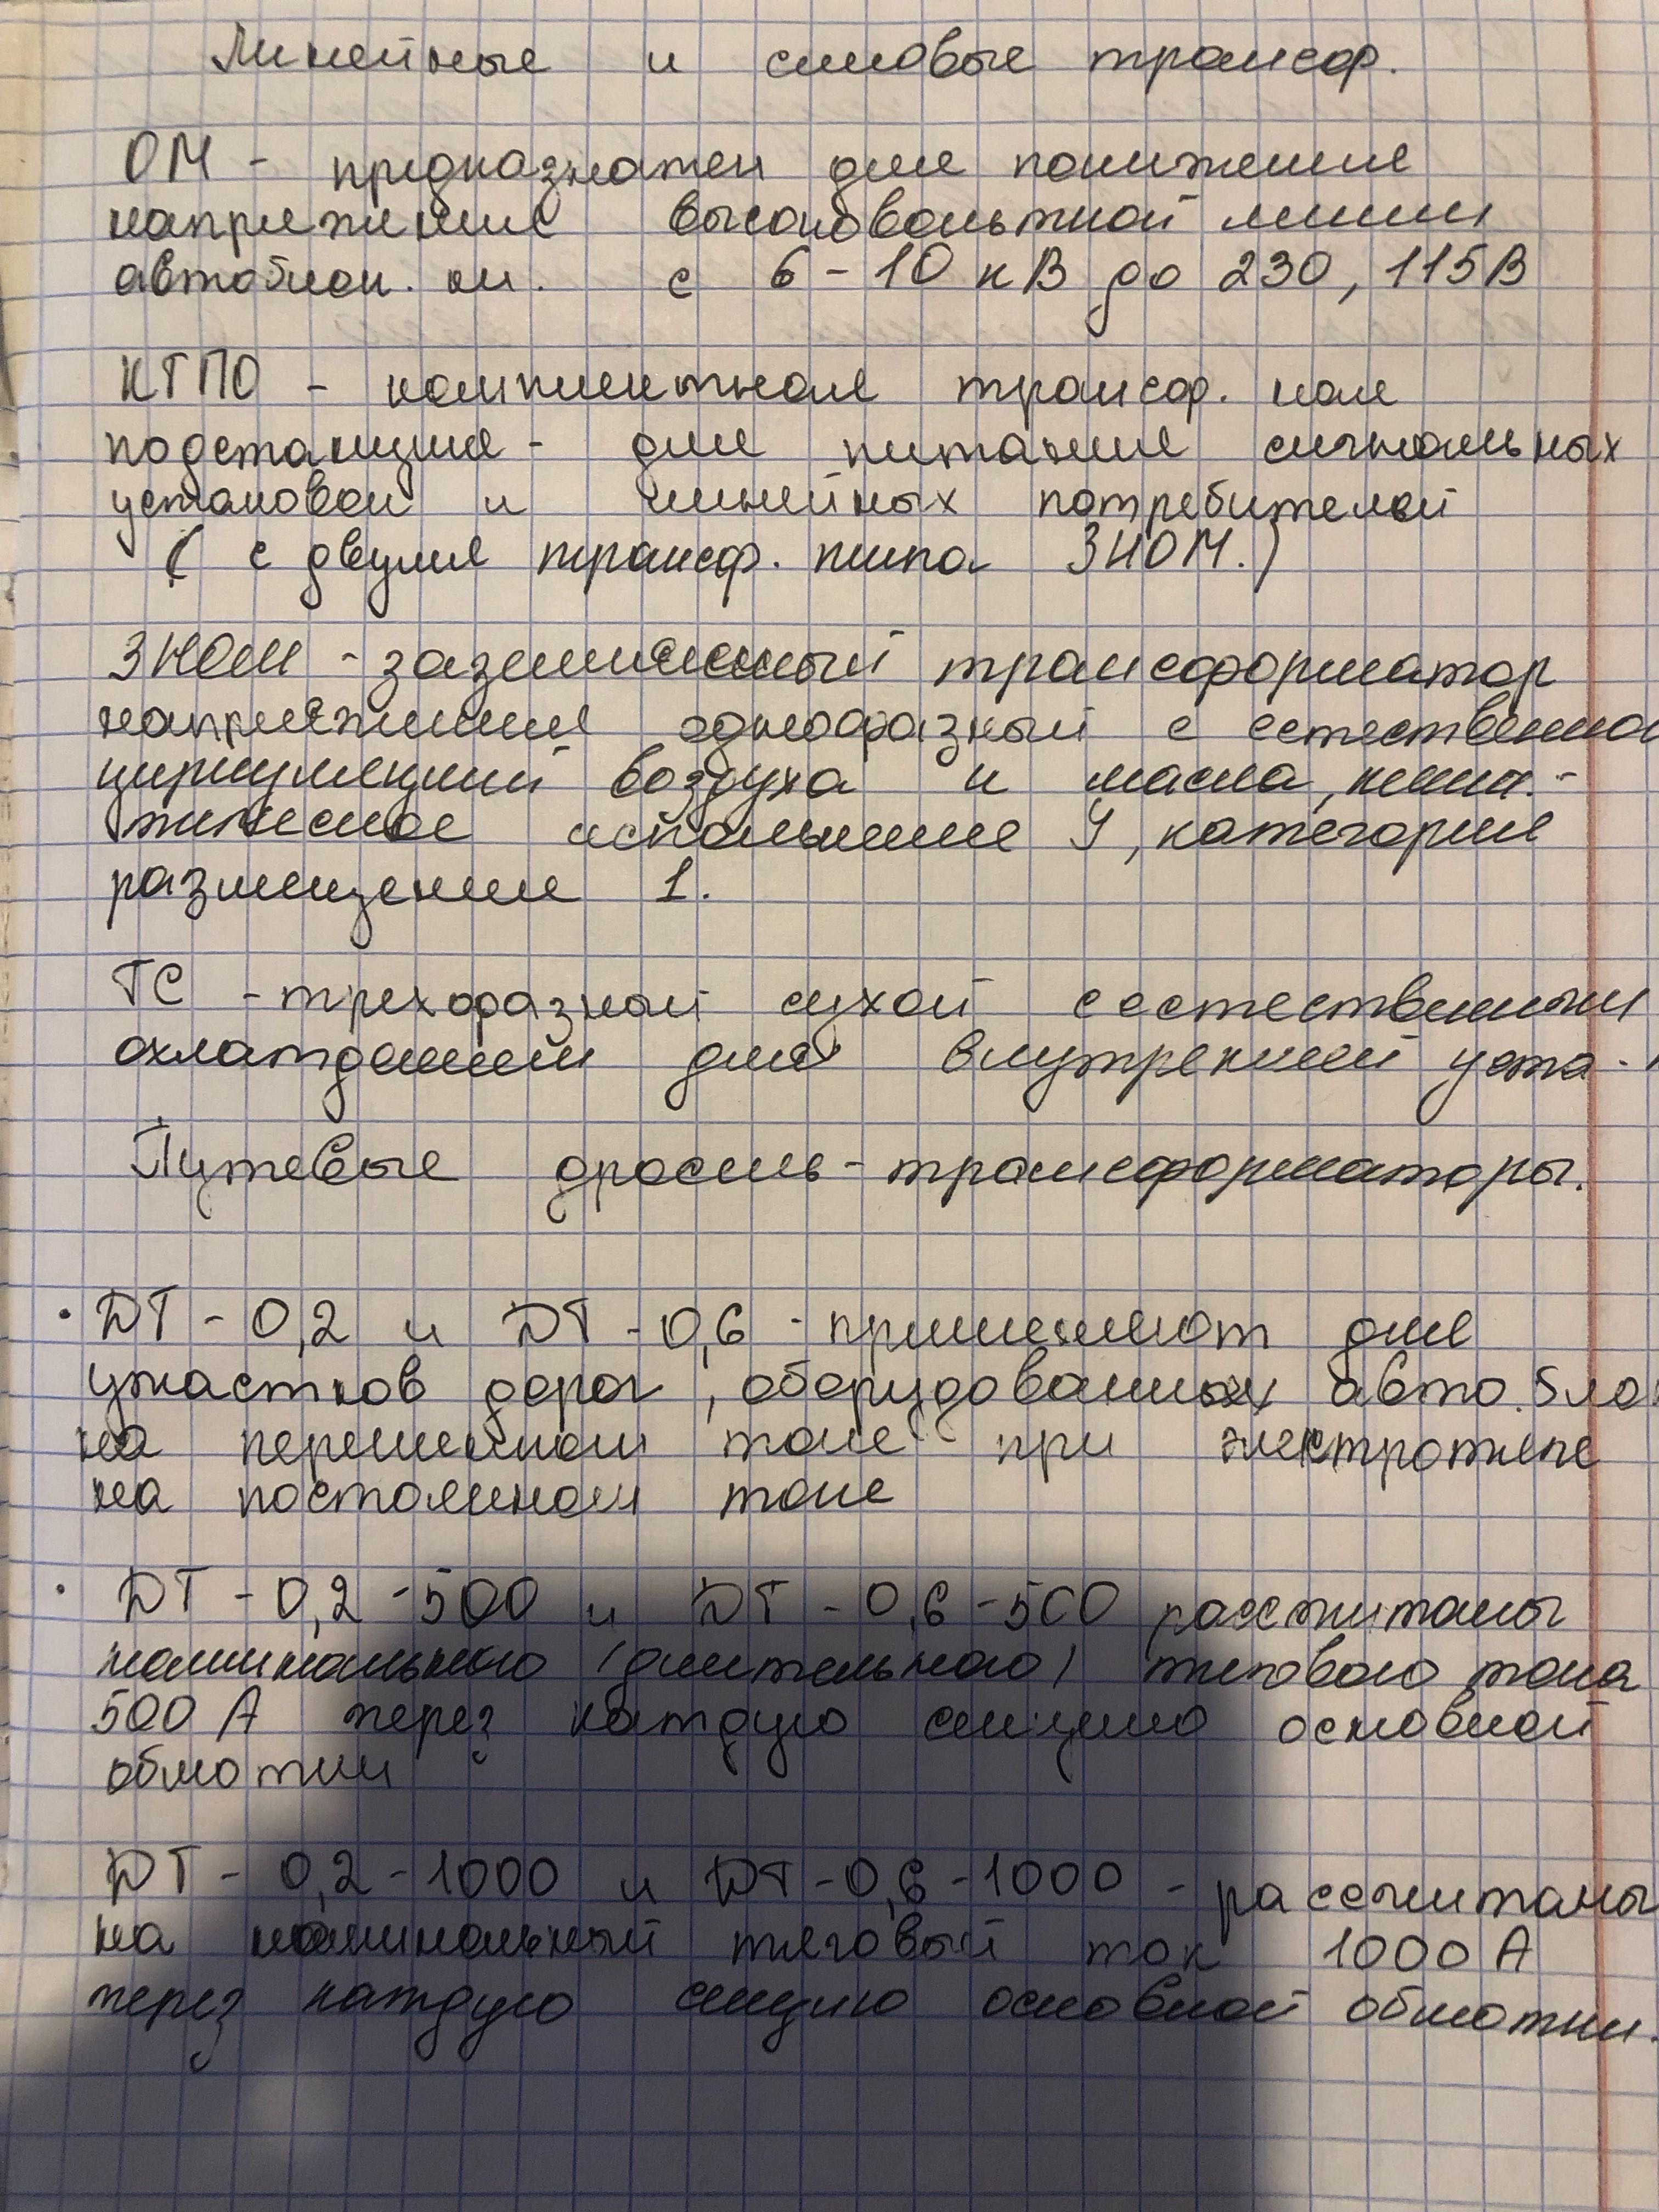 Линейные и силовые трансф.
ОМ - предназначен для понижения
напряжения высоковольтной линии
автоблок. с 6 - 10 кВ до 230, 115В
КТПО - комплектная трансф. ная
подстанция - для питания сигнальных
установок и линейных потребителей
( с двумя трансф. типа ЗНОМ.)
ЗНОМ - заземленный трансформатор
напряжения однофазный с естественно
циркуляцией воздуха и масла, клим.-
тическое исполнение У, категория
размещения 1.
ТС - трехфазный сухой с естественным
охлаждением для внутренней уста-
Путевые дроссель-трансформаторы.
· ДТ - 0,2 и ДТ - 0,6 - применяют для
участков дорог, оборудованных авто.бло
на переменном токе при электротяге
на постоянном токе
· ДТ - 0,2 - 500 и ДТ - 0,6 - 500 рассчитаны
номинального (длительного) тягового тока
500 А через каждую секцию основной
обмотки
ДТ - 0,2 - 1000 и ДТ - 0,6 - 1000 - рассчитаны
на номинальный тяговый ток 1000 А
через каждую секцию основной обмотки.